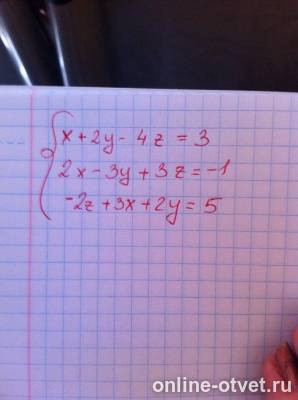 x + 2y - 4z = 3
2x - 3y + 3z = -1
-2z + 3x + 2y = 5
online-otvet.ru